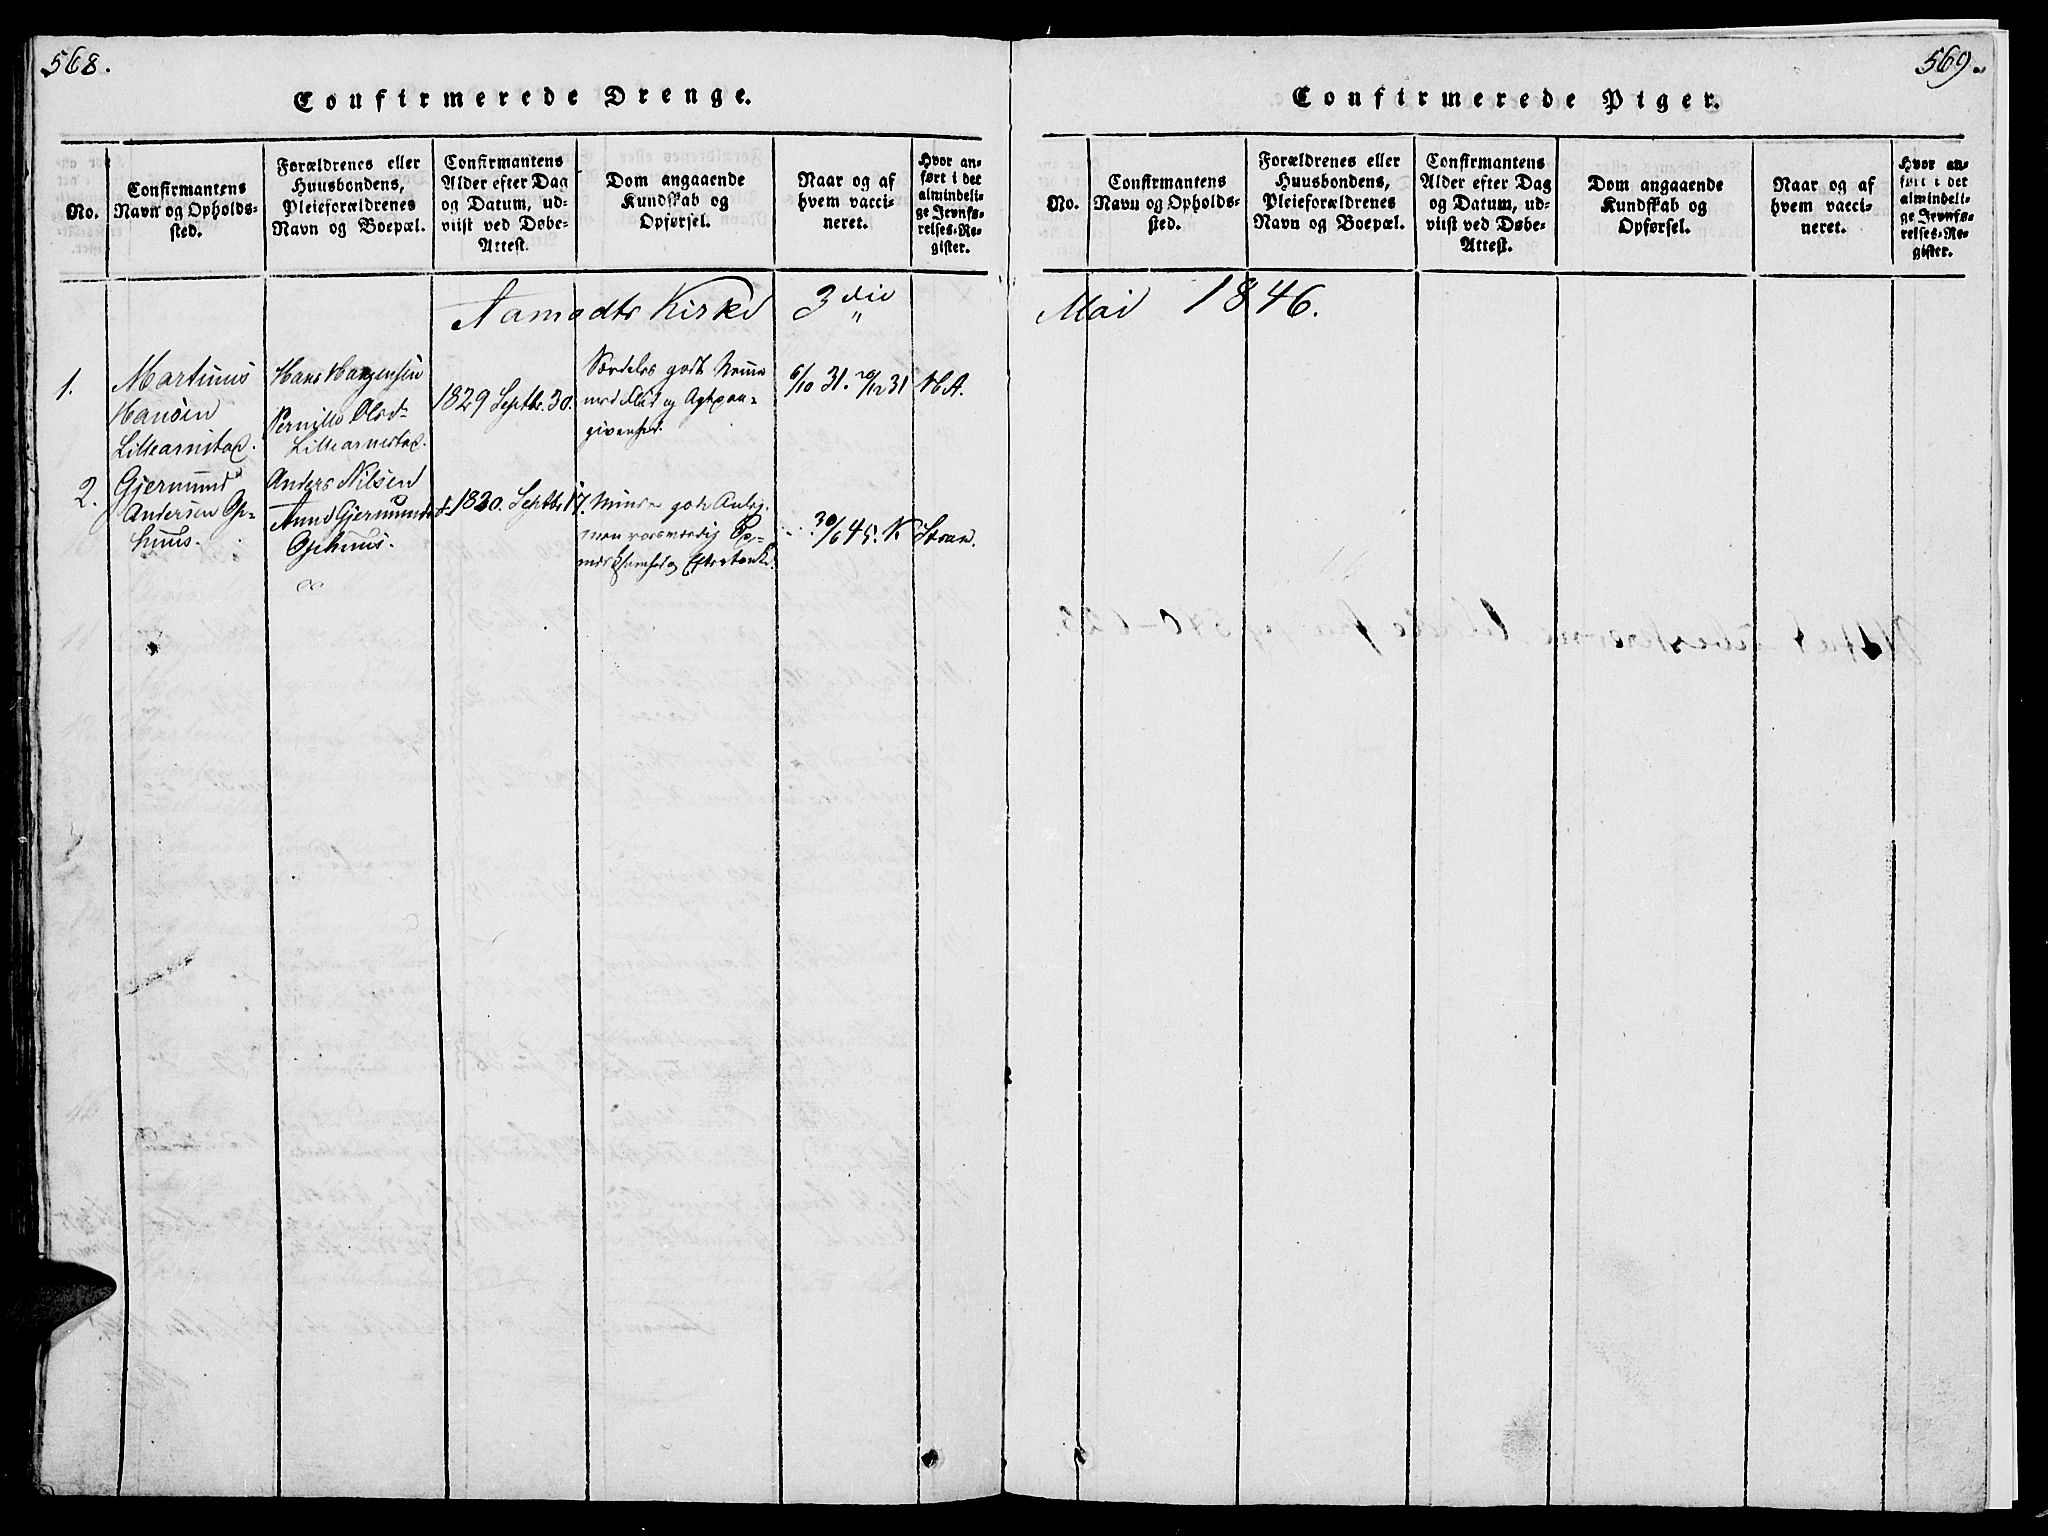 568.
Confirmerede Drenge.
No.
Confirmantens
Navn og Opholds-
sted.
Forældrenes eller
Huusbondens,
Pleieforældrenes
Navn og Boepæl.
Confirmantens
Alder efter Dag
og Datum, ud-
viist ved Døbe-
Attest.
Dom angaaende
Kundskab og
Opførsel.
Naar og af
hvem vacci-
neret.
Hvor an-
ført i det
almindeli-
ge Jevnfø-
relses-Re-
gister.
Aamodts Kirke 3die
1.
Martinus
Hansen
Lillearnstad.
Hans Hansen
Pernille Olsd-
Lillearnstad.
1829 Septbr. 30.
Særdeles godt
med Flid og Agtpaa-
givenhed.
6/10 31. 31
2.
Gjermund
Andersen Op-
huus.
Anders Nilsen
Anne Gjermundsd.
Ophuus.
1830. Septbr 17.
Mindre gode
30/6 45.
569.
Confirmerede Piger.
No.
Confirmantens
Navn og Opholds-
sted.
Forældrenes eller
Huusbondens,
Pleieforældrenes
Navn og Boepæl.
Confirmantens
Alder efter Dag
og Datum, ud-
viist ved Døbe-
Attest.
Dom angaaende
Kundskab og
Opførsel.
Naar og af
hvem vacci-
neret.
Hvor an-
ført i det
almindeli-
ge Jevnfø-
relses-Re-
gister.
Mai 1846.